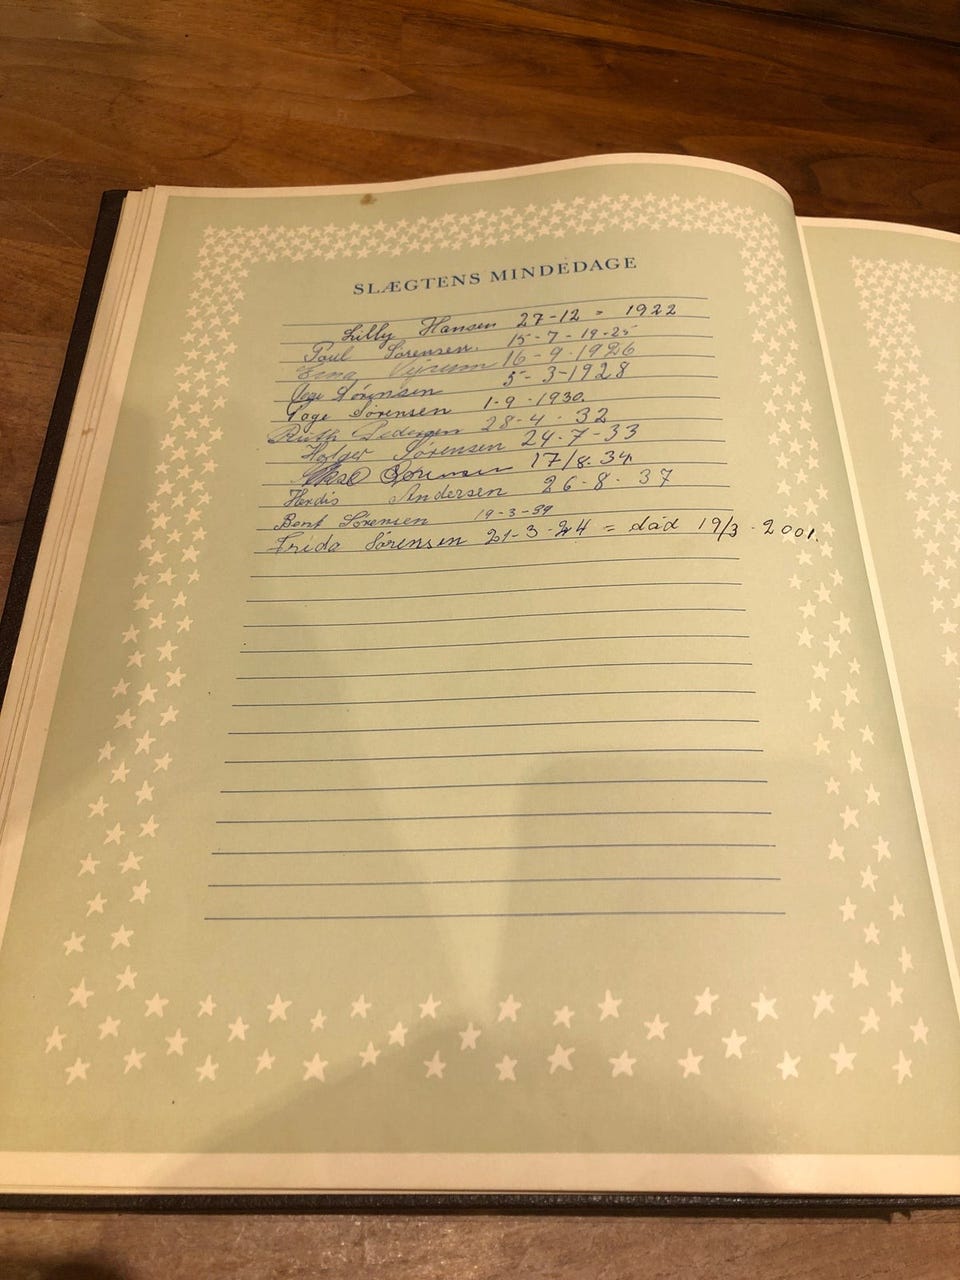 SLÆGTENS MINDEDAGE
Lilly Hansen 27-12 = 1922
Poul Sørensen. 15-7-19-25
Erna 16-9-1926
Sørensen 5-3-1928
Tage Sørensen 1-9-1930.
Ruth Pedersen 28-4-32
Holger Sørensen 24-7-33
Sørensen 17/8.34.
Herdis Andersen 26-8-37
Bent Sørensen 19-3-39
Frida Sørensen 21-3-24 = död 19/3-2001.